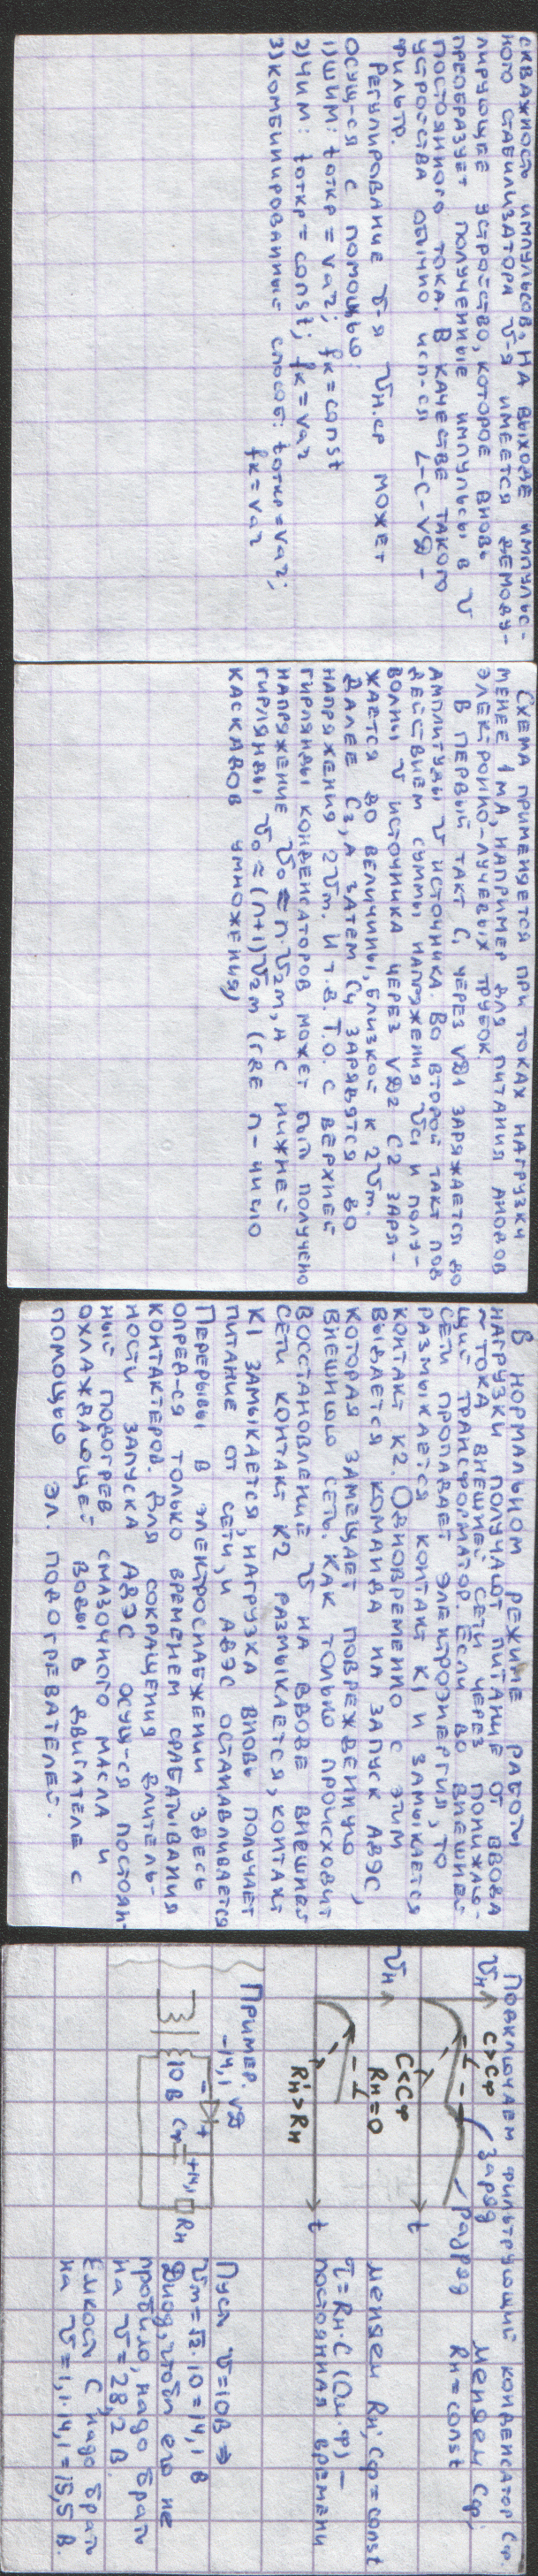 скважность импульсов. На выходе импульс-
ного стабилизатора U-я имеется демоду-
лирующее устройство, которое вновь
преобразует полученные импульсы в U
постоянного тока. В качестве такого
устройства обычно исп-ся L-C-VD-
фильтр.
Регулирование U-я Uн.ср может
осущ-ся с помощью:
1) ШИМ: tоткр = var; fк = const
2) ЧИМ: tоткр = const; fк = var
3) комбинированный способ: tоткр = var;
fк = var
Схема применяется при токах нагрузки
менее 1 мА, например для питания анодов
электронно-лучевых трубок.
В первый такт C1 через VD1 заряжается до
амплитуды U источника. Во второй такт под
действием суммы напряжения Uc1 и полу-
волны U источника через VD2 C2 заря-
жается до величины, близкой к 2Um.
Далее C3, а затем C4 зарядятся до
напряжения 2Um. И т.д. Т.о. с верхней
гирлянды конденсаторов может быть получено
напряжение U0 ≈ n·U2m, а с нижней
гирлянды U0 ≈ (n+1)U2m (где n - число
каскадов умножения)
В нормальном режиме работы
нагрузки получают питание от ввода
~ тока внешней сети через понижаю-
щий трансформатор. Если во внешней
сети пропадает электроэнергия, то
размыкается контакт К1 и замыкается
контакт К2. Одновременно с этим
выдаётся команда на запуск АДЭС,
которая замещает повреждённую
внешнюю сеть. Как только происходит
восстановление U на вводе внешней
сети контакт К2 размыкается, контакт
К1 замыкается, нагрузка вновь получает
питание от сети, и АДЭС останавливается
Перерывы в электроснабжении здесь
опред-ся только временем срабатывания
контактеров. Для сокращения длитель-
ности запуска АДЭС осущ-ся постоян-
ный подогрев смазочного масла и
охлаждающей воды в двигателе с
помощью эл. подогревателей.
Подключаем фильтрующий конденсатор Cф.
Uн C>Cф заряд меняем Cф;
разряд Rн = const
C<Cф t
Uн Rн=0 меняем Rн; Cф = const
τ = Rн·C (Ом·Ф) –
R'н>Rн t постоянная времени
Пример. VD
-14,1 Пусть U=10В ⇒
- + Um = √2·10 = 14,1 В
10В Cф +14,1 Rн Диод, чтобы его не
пробило, надо брать
на U = 28,2 В.
Ёмкость C надо брать
на U = 1,1·14,1 = 15,5 В.